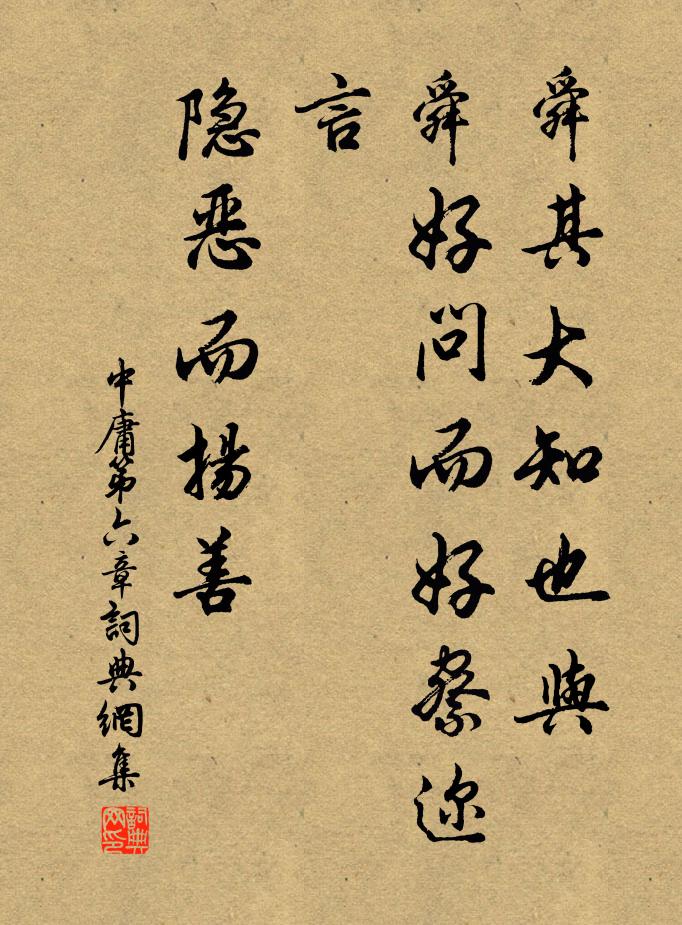 舜其大知也與
舜好問而好察邇
言
隐恶而揚善
中庸第六章詞典網集
詞典網印